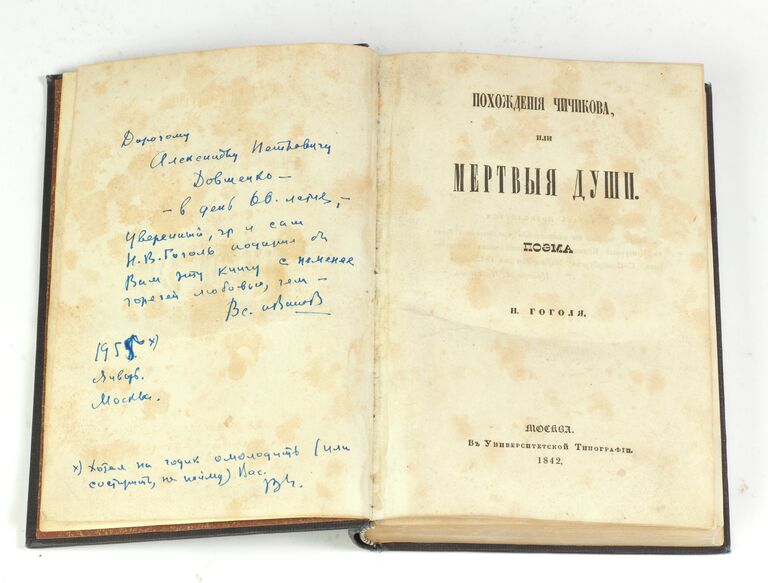 Дорогому
Александру Петровичу
Довженко —
— в день 60-летия, —
уверенный, что и сам
Н.В. Гоголь подарил бы
Вам эту книгу с неменее
горячей любовью, чем —
Вс. Иванов
1955 x)
Январь.
Москва.
x) Хотел на годик омолодить (или
состарить, не пойму) Вас.
ПОХОЖДЕНІЯ ЧИЧИКОВА,
ИЛИ
МЕРТВЫЯ ДУШИ.
ПОЭМА
Н. ГОГОЛЯ.
МОСКВА.
Въ Университетской Типографіи.
1842.